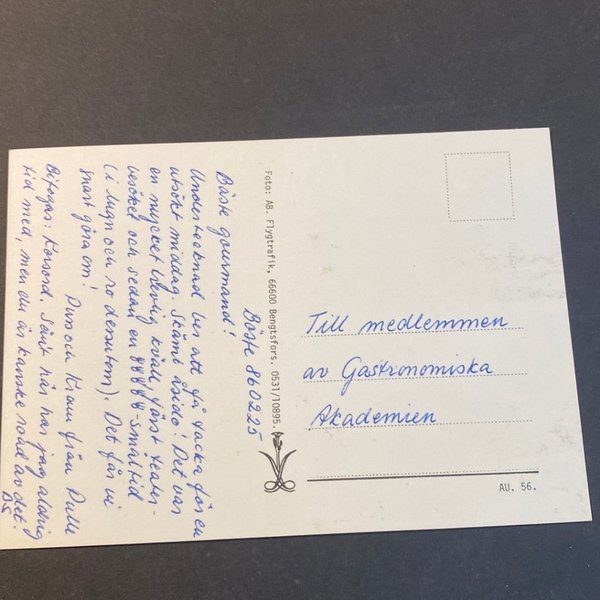 Båstr 860225
Bäste gourmand!
Undertecknad ber att få tacka för en
utsökt middag. Skämt åsido! Det var
en mycket trevlig kväll, först teater-
besöket och sedan en måltid
(i lugn och ro dessutom). Det får vi
snart göra om!
Puss och Kram från Pulle
Bifogas: Korsord. Sånt här har jag aldrig
tid med, men du är kanske road av det.
DS
Foto: AB. Flygtrafik, 66600 Bengtsfors. 0531/10895.
Till medlemmen
av Gastronomiska
Akademien
AU. 56.